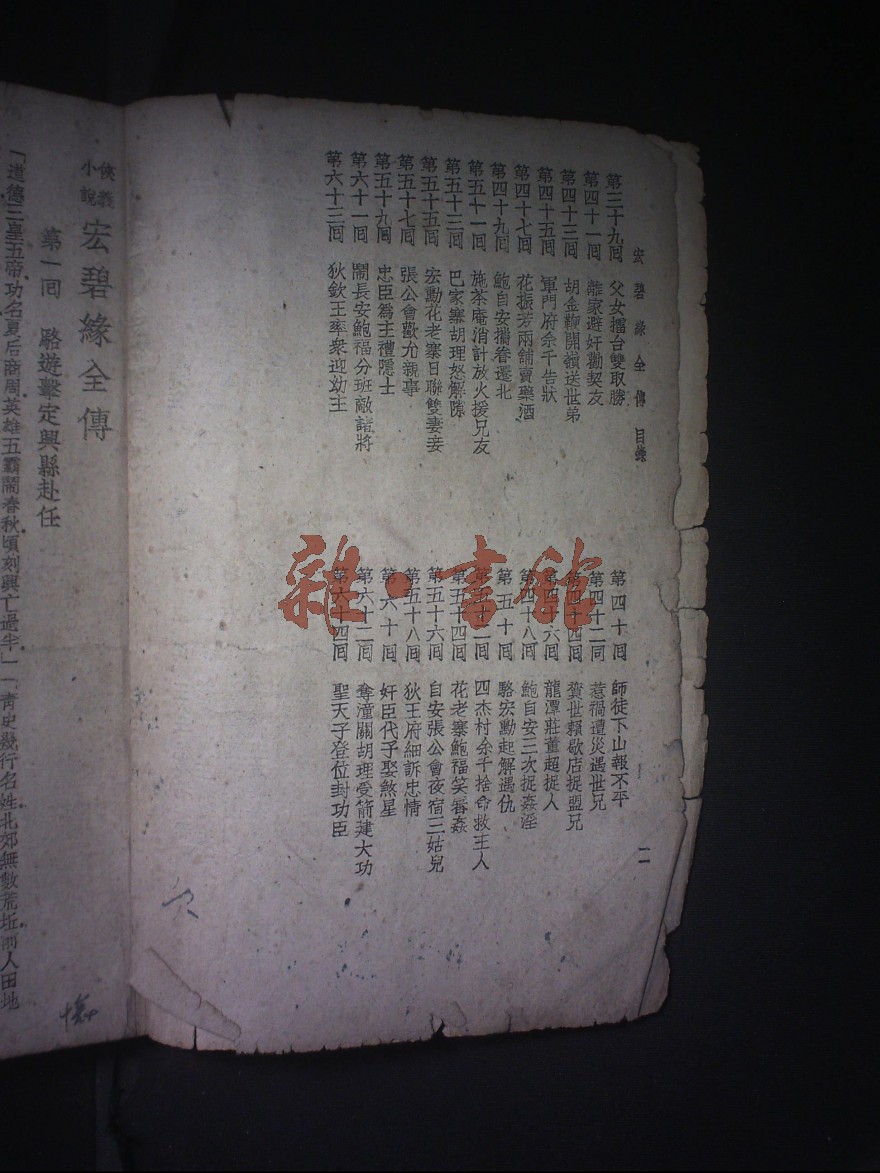 宏碧緣全傳 目錄
二
第三十九回 父女擂台雙取勝
第四十回 師徒下山報不平
第四十一回 離家避奸勸契友
第四十二回 惹禍遭災遇世兄
第四十三回 胡金鞭開嶺送世弟
第四十四回 賀世賴歇店捉盟兄
第四十五回 軍門府余千告狀
第四十六回 龍潭莊董超捉人
第四十七回 花振芳兩舖賣藥酒
第四十八回 鮑自安三次捉姦淫
第四十九回 鮑自安攜眷遷北
第五十回 駱宏勳起解遇仇
第五十一回 施茶庵消計放火援兄友
第五十二回 四杰村余千捨命救主人
第五十三回 巴家寨胡理怒解隙
第五十四回 花老寨鮑福笑審姦
第五十五回 宏勳花老寨日聯雙妻妾
第五十六回 自安張公會夜宿三姑兒
第五十七回 張公會歡允親事
第五十八回 狄王府細訴忠情
第五十九回 忠臣爲主禮隱士
第六十回 奸臣代子娶煞星
第六十一回 鬧長安鮑福分班敵諸將
第六十二回 奪潼關胡理受箭建大功
第六十三回 狄欽王率衆迎幼主
第六十四回 聖天子登位封功臣
俠義小說 宏碧緣全傳
第一回 駱遊擊定興縣赴任
「道德三皇五帝功名夏后商周英雄五霸鬧春秋頃刻興亡過半」「靑史幾行名姓北邙無數荒坵前人田地
雜·書館